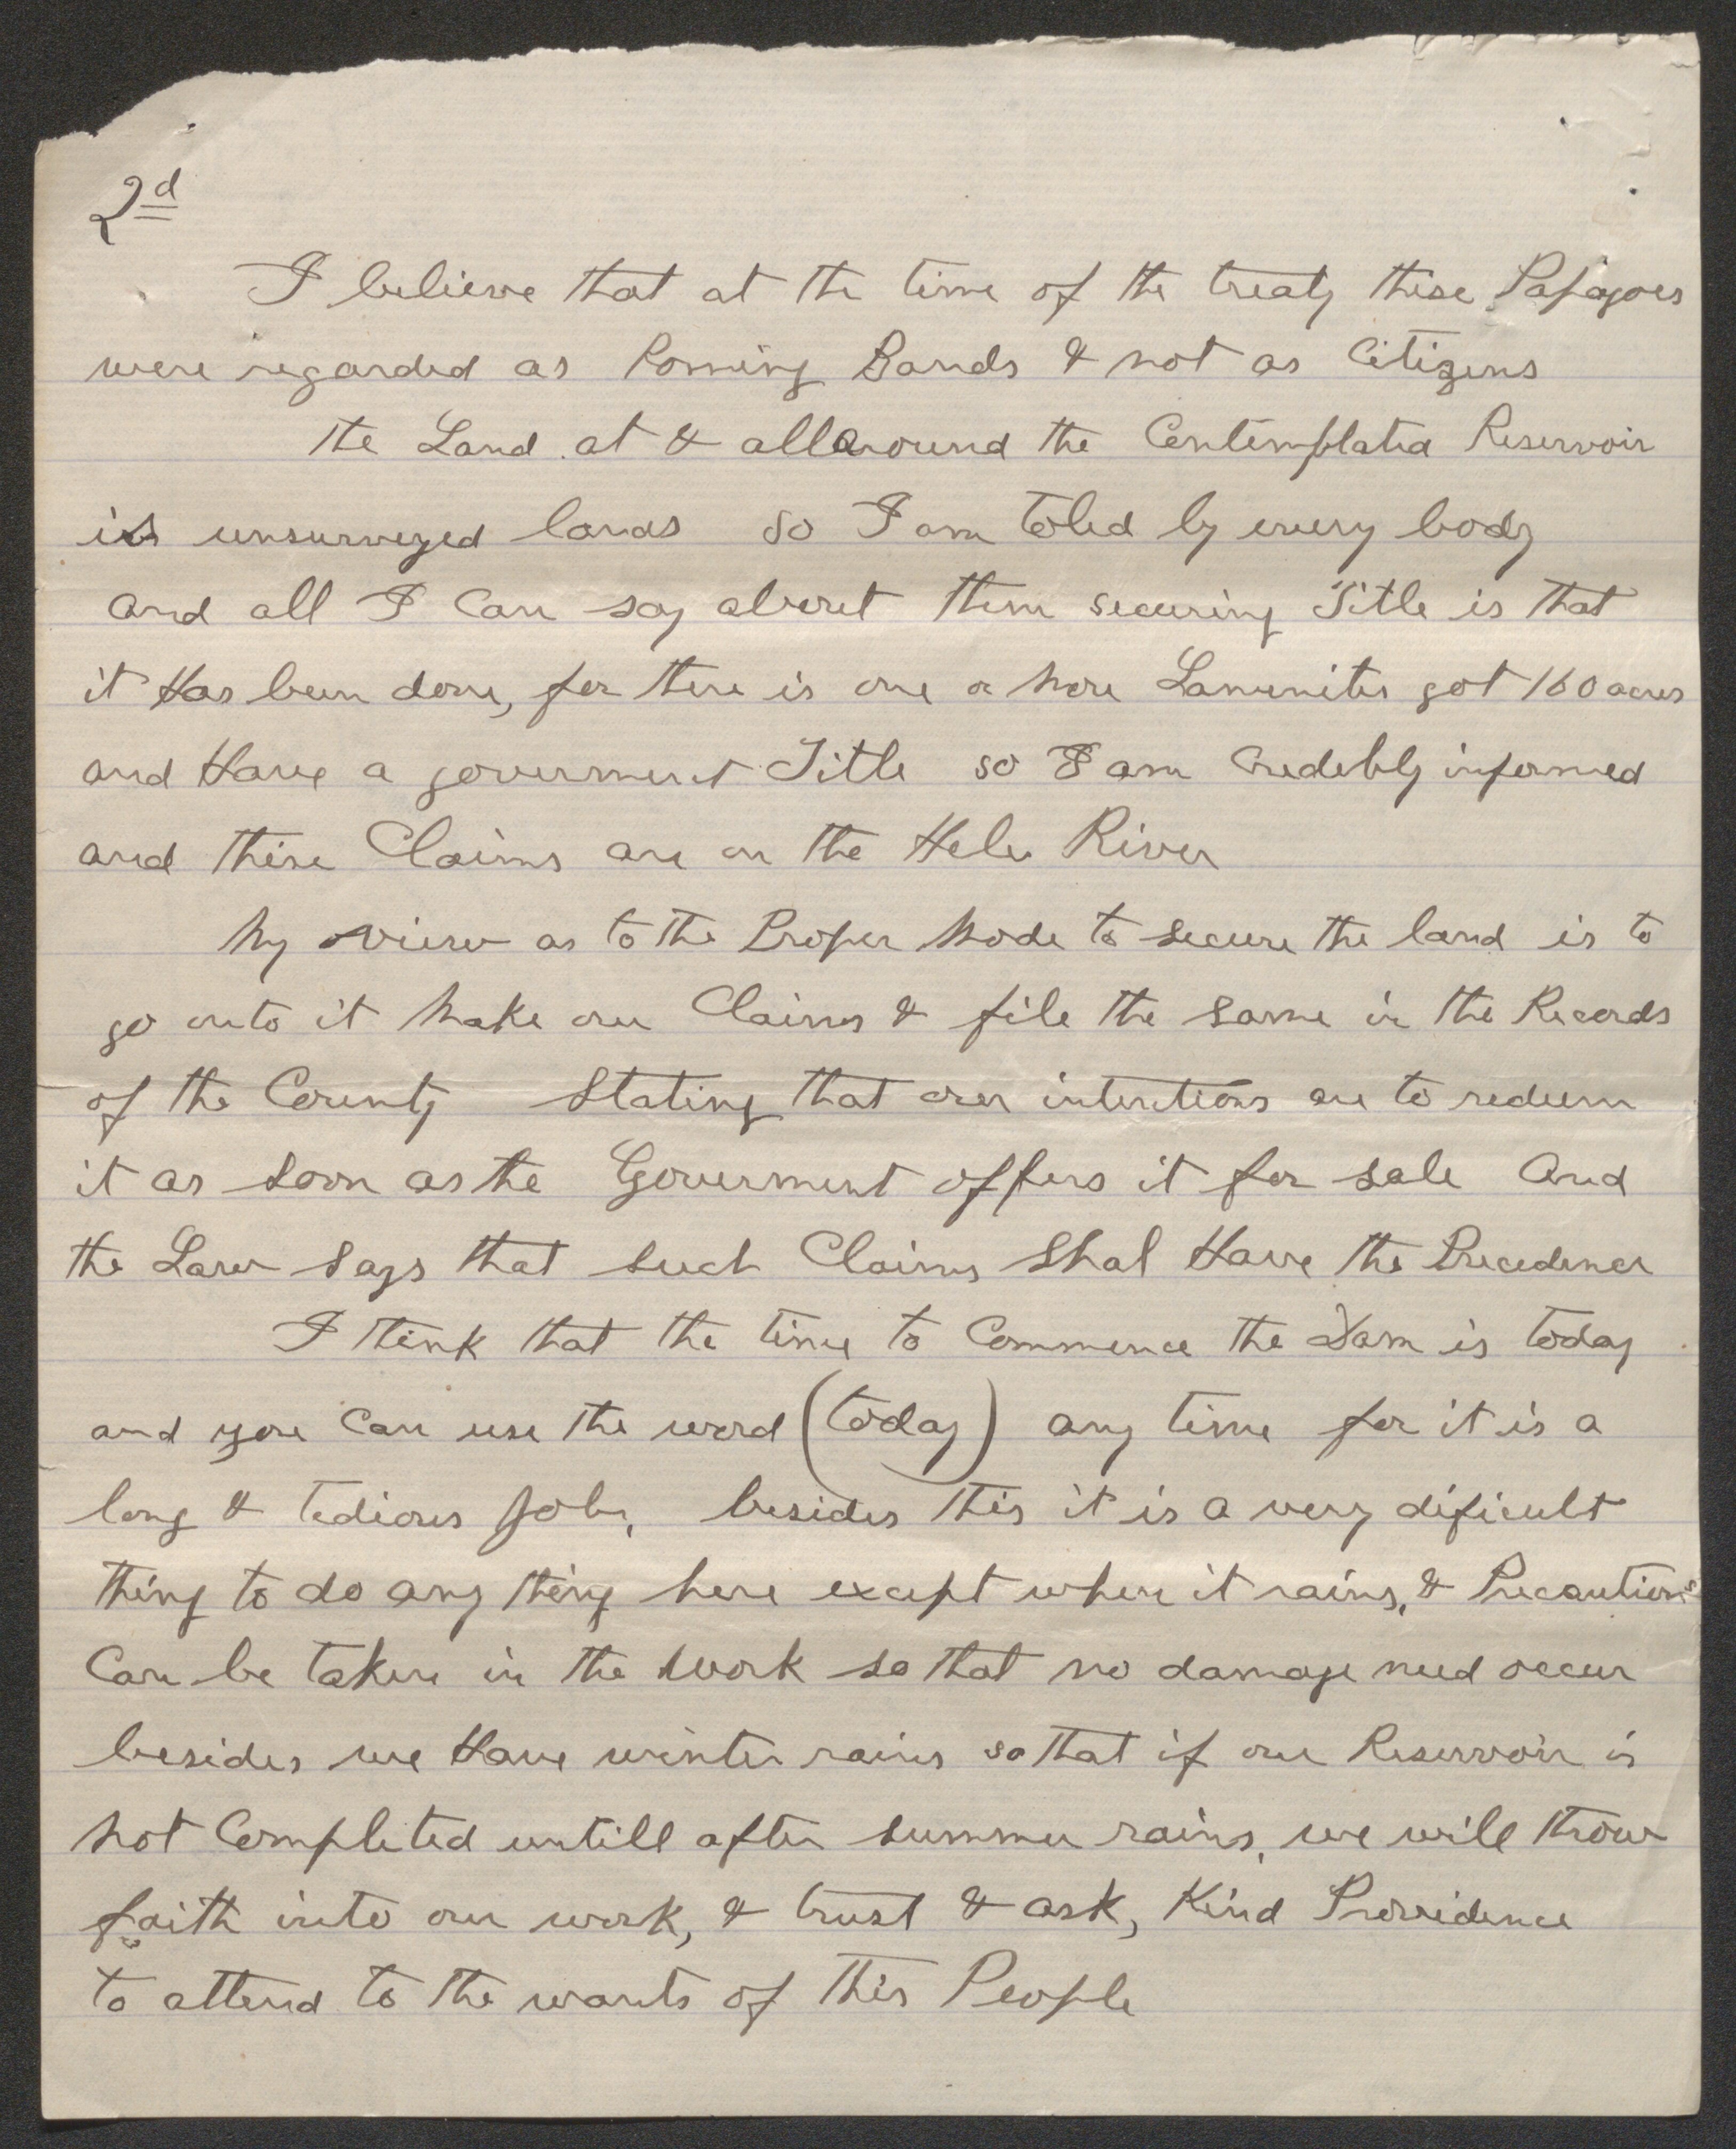 2d
I believe that at the time of the treaty these Papagoes
were regarded as Roming Bands & not as Citizens
the Land at & all around the Contemplated Reservoir
is unsurveyed lands so I am toled by every body
and all I Can say about them securing Title is that
it Has been done, for there is one or more Lamenites got 160 acres
and Have a goverment Title so I am Credebly informed
and these Claims are on the Hela River
My view as to the Proper Mode to secure the land is to
go onto it Make our Claims & file the same in the Records
of the County Stating that our intentions are to redeem
it as soon as the Goverment offers it for sale And
the Law says that such Claims Shal Have the Precedence
I think that the time to Commence the Dam is today
and you Can use the word (today) any time for it is a
long & tedious Job, besides this it is a very dificult
thing to do any thing here except when it rains, & Precautions
Can be taken in the work so that no damage need occur
besides we Have winter rains so that if our Reservoir is
not Completed untill after summer rains, we will throw
faith into our work, & trust & ask, Kind Providence
to attend to the wants of this People